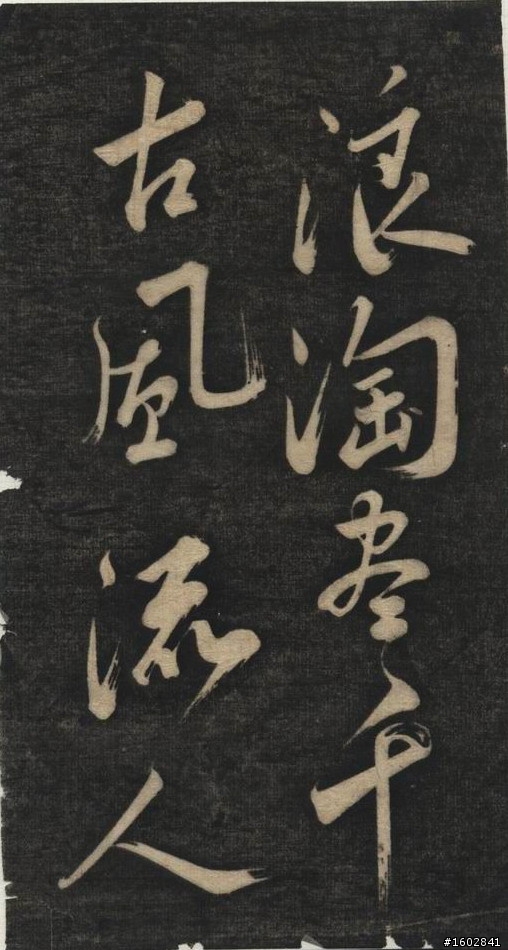 浪淘盡千
古風流人
#1602841